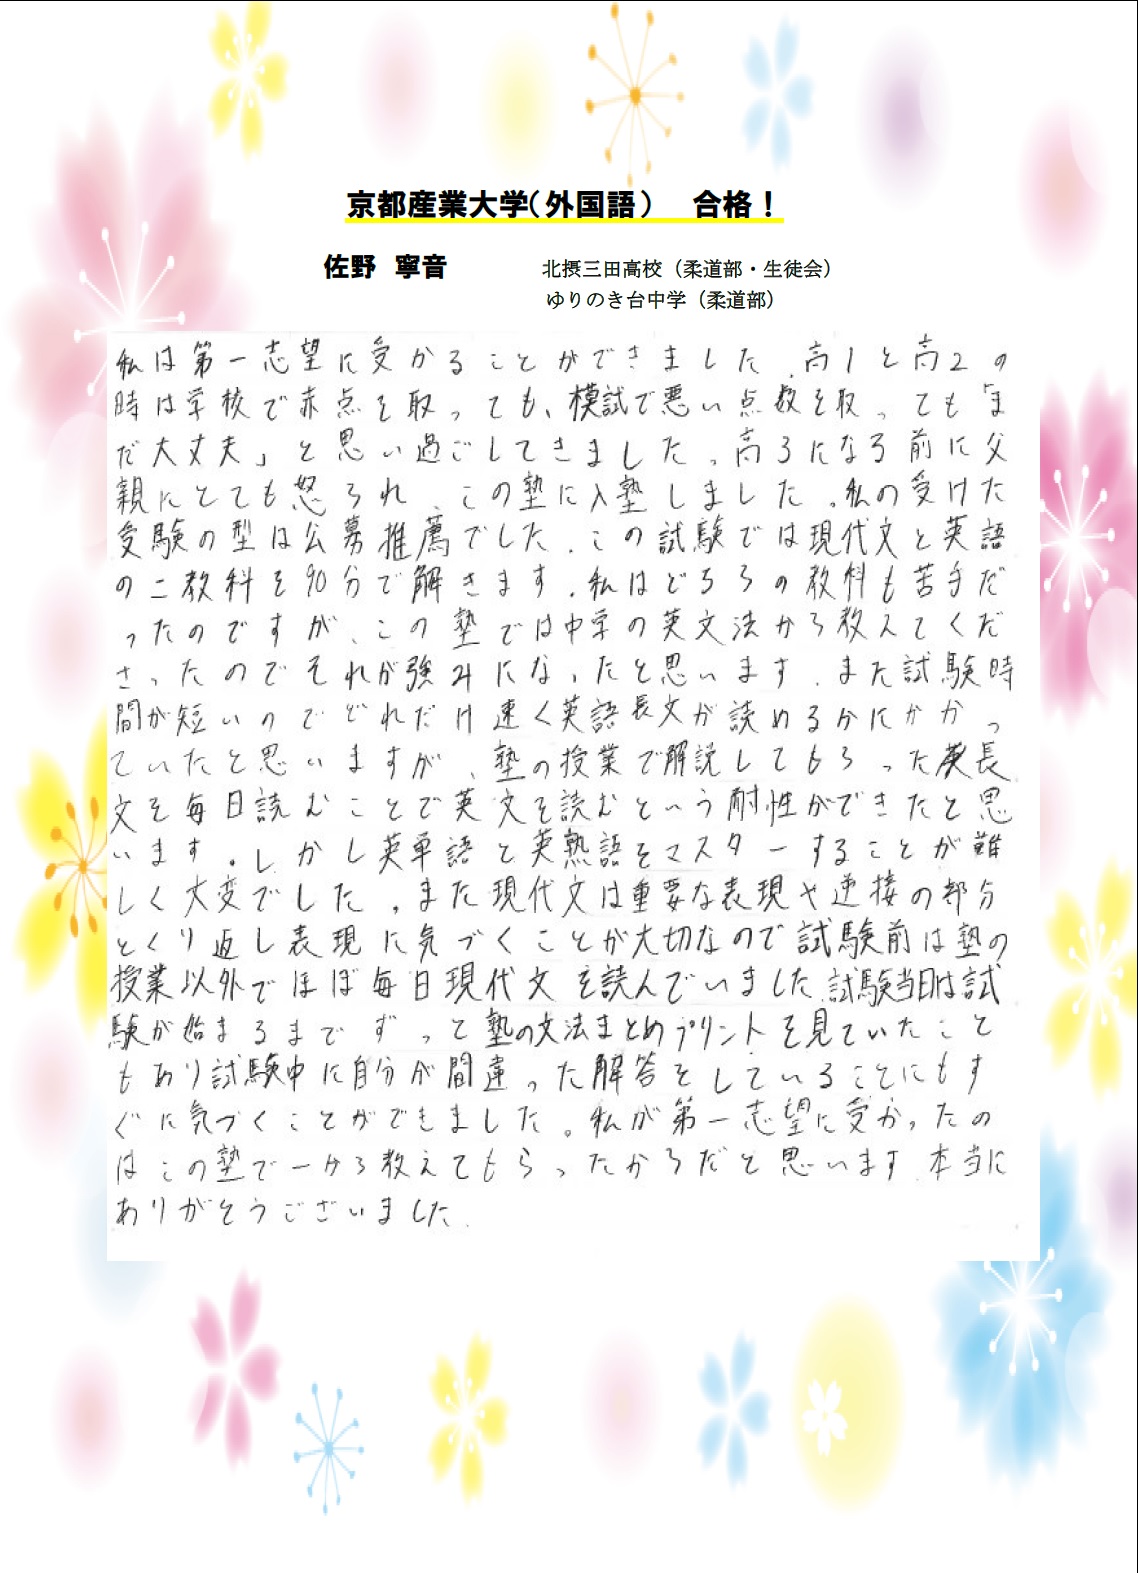 京都産業大学（外国語）　合格！
佐野　寧音　北摂三田高校（柔道部・生徒会）
ゆりのき台中学（柔道部）
私は第一志望に受かることができました.高1と高2の
時は学校で赤点を取っても、模試で悪い点数を取っても「ま
だ大丈夫」と思い過ごしてきました。高3になる前に父
親にとても怒られ、この塾に入塾しました。私の受けた
受験の型は公募推薦でした.この試験では現代文と英語
の二教科を90分で解きます.私はどちらの教科も苦手だ
ったのですが、この塾では中学の英文法から教えてくだ
さったのでそれが強みになったと思います.また試験時
間が短いのでどれだけ速く英語長文が読めるかにかかっ
ていたと思いますが、塾の授業で解説してもらった英長
文を毎日読むことで英文を読むという耐性ができたと思
います。しかし英単語と英熟語をマスターすることが難
しく大変でした。また現代文は重要な表現や逆接の部分
とくり返し表現に気づくことが大切なので試験前は塾の
授業以外でほぼ毎日現代文を読んでいました.試験当日は試
験が始まるまでずっと塾の文法まとめプリントを見ていたこと
もあり試験中に自分が間違った解答をしていることにもす
ぐに気づくことができました。私が第一志望に受かったの
はこの塾で一から教えてもらったからだと思います.本当に
ありがとうございました.